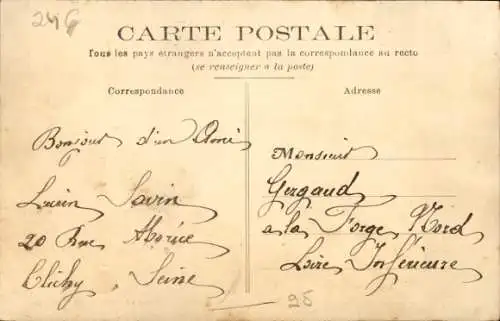 246
CARTE POSTALE
Tous les pays étrangers n'acceptent pas la correspondance au recto
(se renseigner à la poste)
Correspondance
Bonjour d'un Ami
Lucien Savin
20 Rue
Clichy Seine
Adresse
Monsieur
Gergaud
a la Forge Nord
Loire Inférieure
25